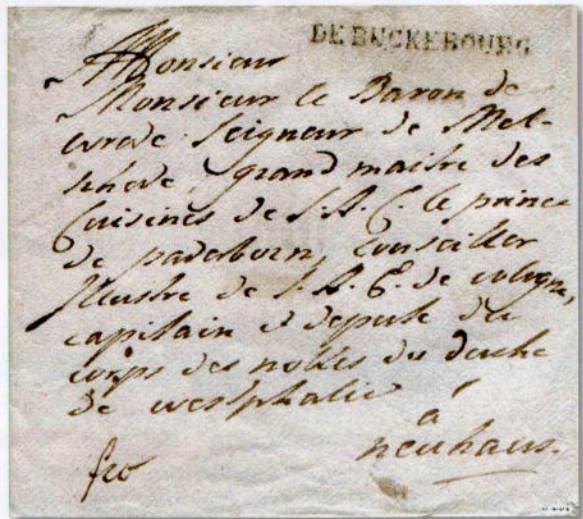 DE BUCKEBOURG
Monsieur
Monsieur le Baron de
seigneur de Mel-
schede, grand maitre des
Cuisines de S. A. C. le prince
de paderborn, Conseiller
Illustre de S. A. E. de cologne,
capitain et depute du
corps des nobles du duche
de westphalie
a
neuhaus.
fco